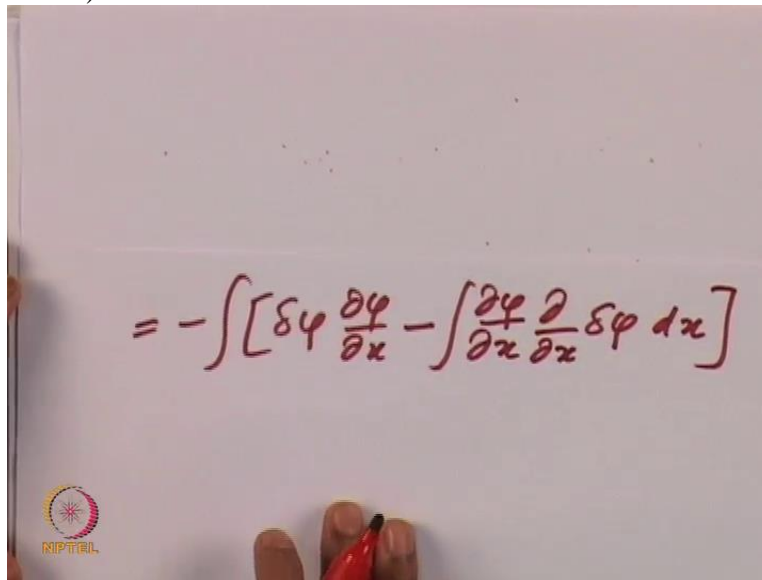 )
= -∫[δφ ∂φ/∂x - ∫ ∂φ/∂x ∂/∂x δφ dx]
NPTEL